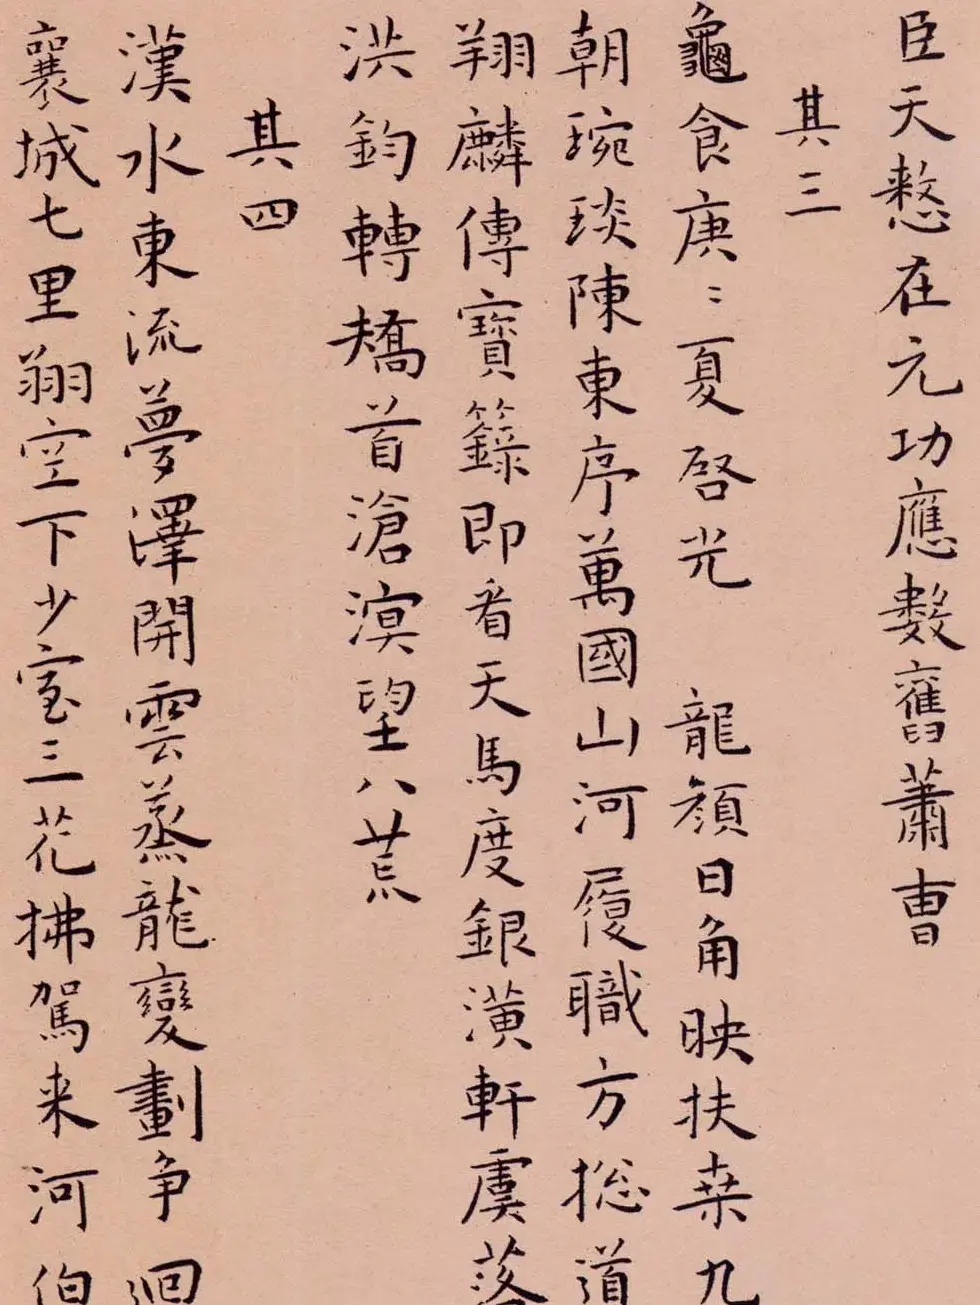 臣天憖在元功應數舊蕭曹
其三
龜食庚〻夏啓光 龍顔日角映扶桒九
朝琬琰陳東序萬國山河履職方揔道
翔麟傳寶籙即看天馬度銀潢軒虞落
洪鈞轉矯首滄溟望八荒
其四
漢水東流夢澤開雲蒸龍變劃争迴
襄城七里翔空下少室三花拂駕来河伯